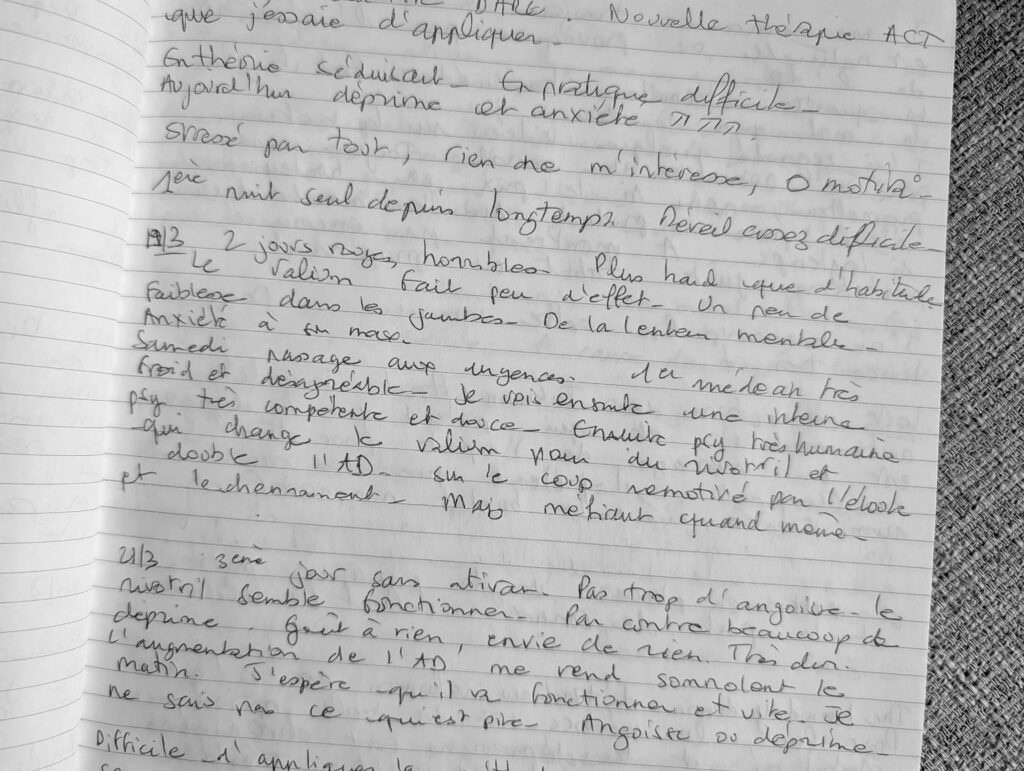 DARE. Nouvelle thérapie ACT
que j'essaie d'appliquer.
En théorie séduisant - En pratique difficile -
Aujourd'hui déprime et anxiété ↗↗↗.
Stressé par tout, rien ne m'intéresse, 0 motiva°-
1ère nuit seul depuis longtemps. Réveil assez difficile -
19/3 2 jours horribles - Plus hard que d'habitude
Le Valium fait peu d'effet - Un peu de
faiblesse dans les jambes - De la lenteur mentale -
Anxiété à
Samedi passage aux urgences. médecin très
froid et désagréable - Je vois ensuite une interne
psy très compétente et douce - Ensuite psy très humaine
qui change le valium pour du rivotril et
double l'AD - Sur le coup remotivé par l'écoute
et le changement - Mais méfiant quand même -
21/3 3ème jour sans ativan - Pas trop d'angoisse - le
rivotril semble fonctionner - Par contre beaucoup de
déprime. Goût à rien, envie de rien. Très dur.
L'augmentation de l'AD me rend somnolent le
matin. J'espère qu'il va fonctionner et vite - Je
ne sais pas ce qui est pire - Angoisse ou déprime
Difficile d'appliquer la